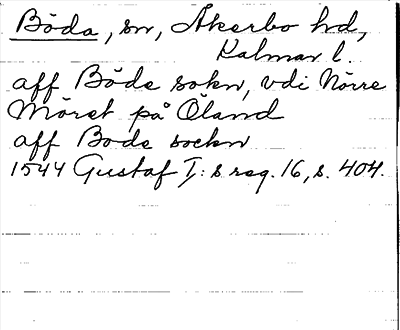 Böda, sn, Åkerbo hd,
Kalmar l.
aff Böde sokn, vdi Nörre
Möret på Öland
aff Bode sockn
1544 Gustaf I:s reg. 16, s. 404.